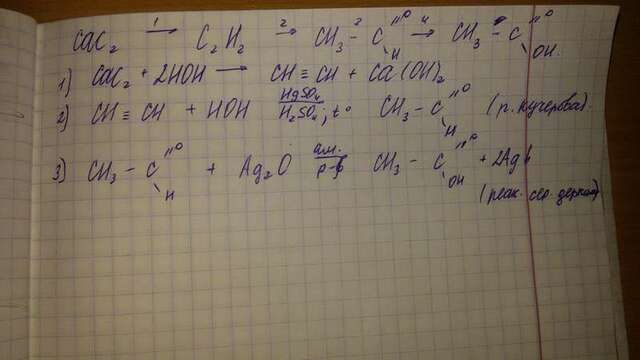 CaC₂ →¹ C₂H₂ →² CH₃ - C =O H → CH₃ - C =O OH.
1) CaC₂ + 2HOH → CH ≡ CH + Ca(OH)₂
2) CH ≡ CH + HOH HgSO₄ H₂SO₄, t° CH₃ - C =O H (р. Кучерова).
3) CH₃ - C =O H + Ag₂O ам. р-р CH₃ - C =O OH + 2Ag↓
(реак. сер. зеркала)